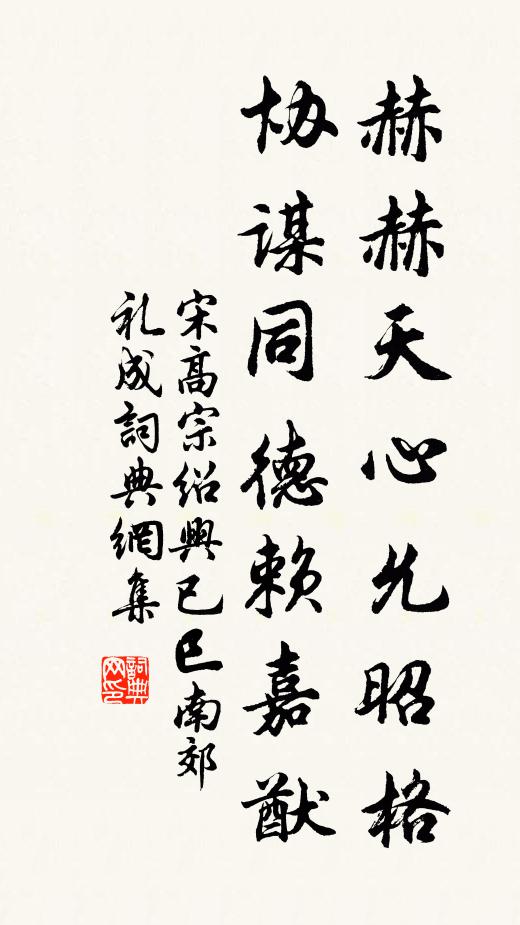 赫赫天心允昭格
协谋同德赖嘉猷
宋高宗绍興已巳南郊
礼成詞典網集
詞典网印